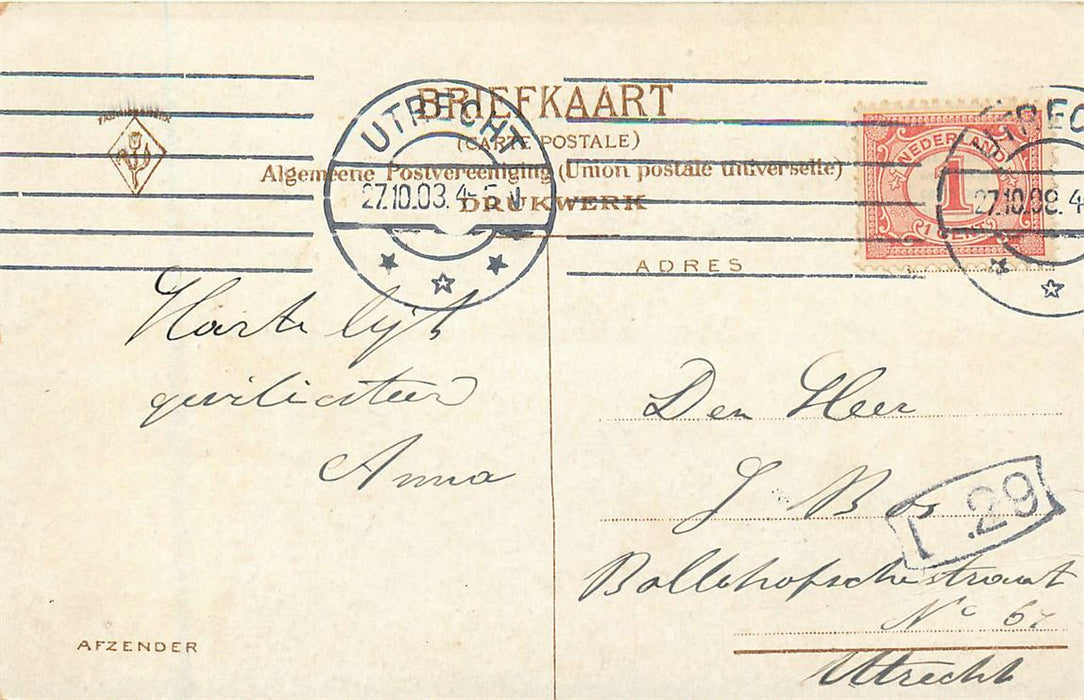 BRIEFKAART
(CARTE POSTALE)
Algemeene Postvereeniging (Union postale universelle)
DRUKWERK
UTRECHT
27.10.03. 4-5 N
NEDERLAND
1
1 CENT
UTREC
27.10.08. 4
ADRES
Hartelijk
gefeliciteerd
Anna
Den Heer
J Bos
1 .29
Bollenhofschestraat
No 67
Utrecht
AFZENDER